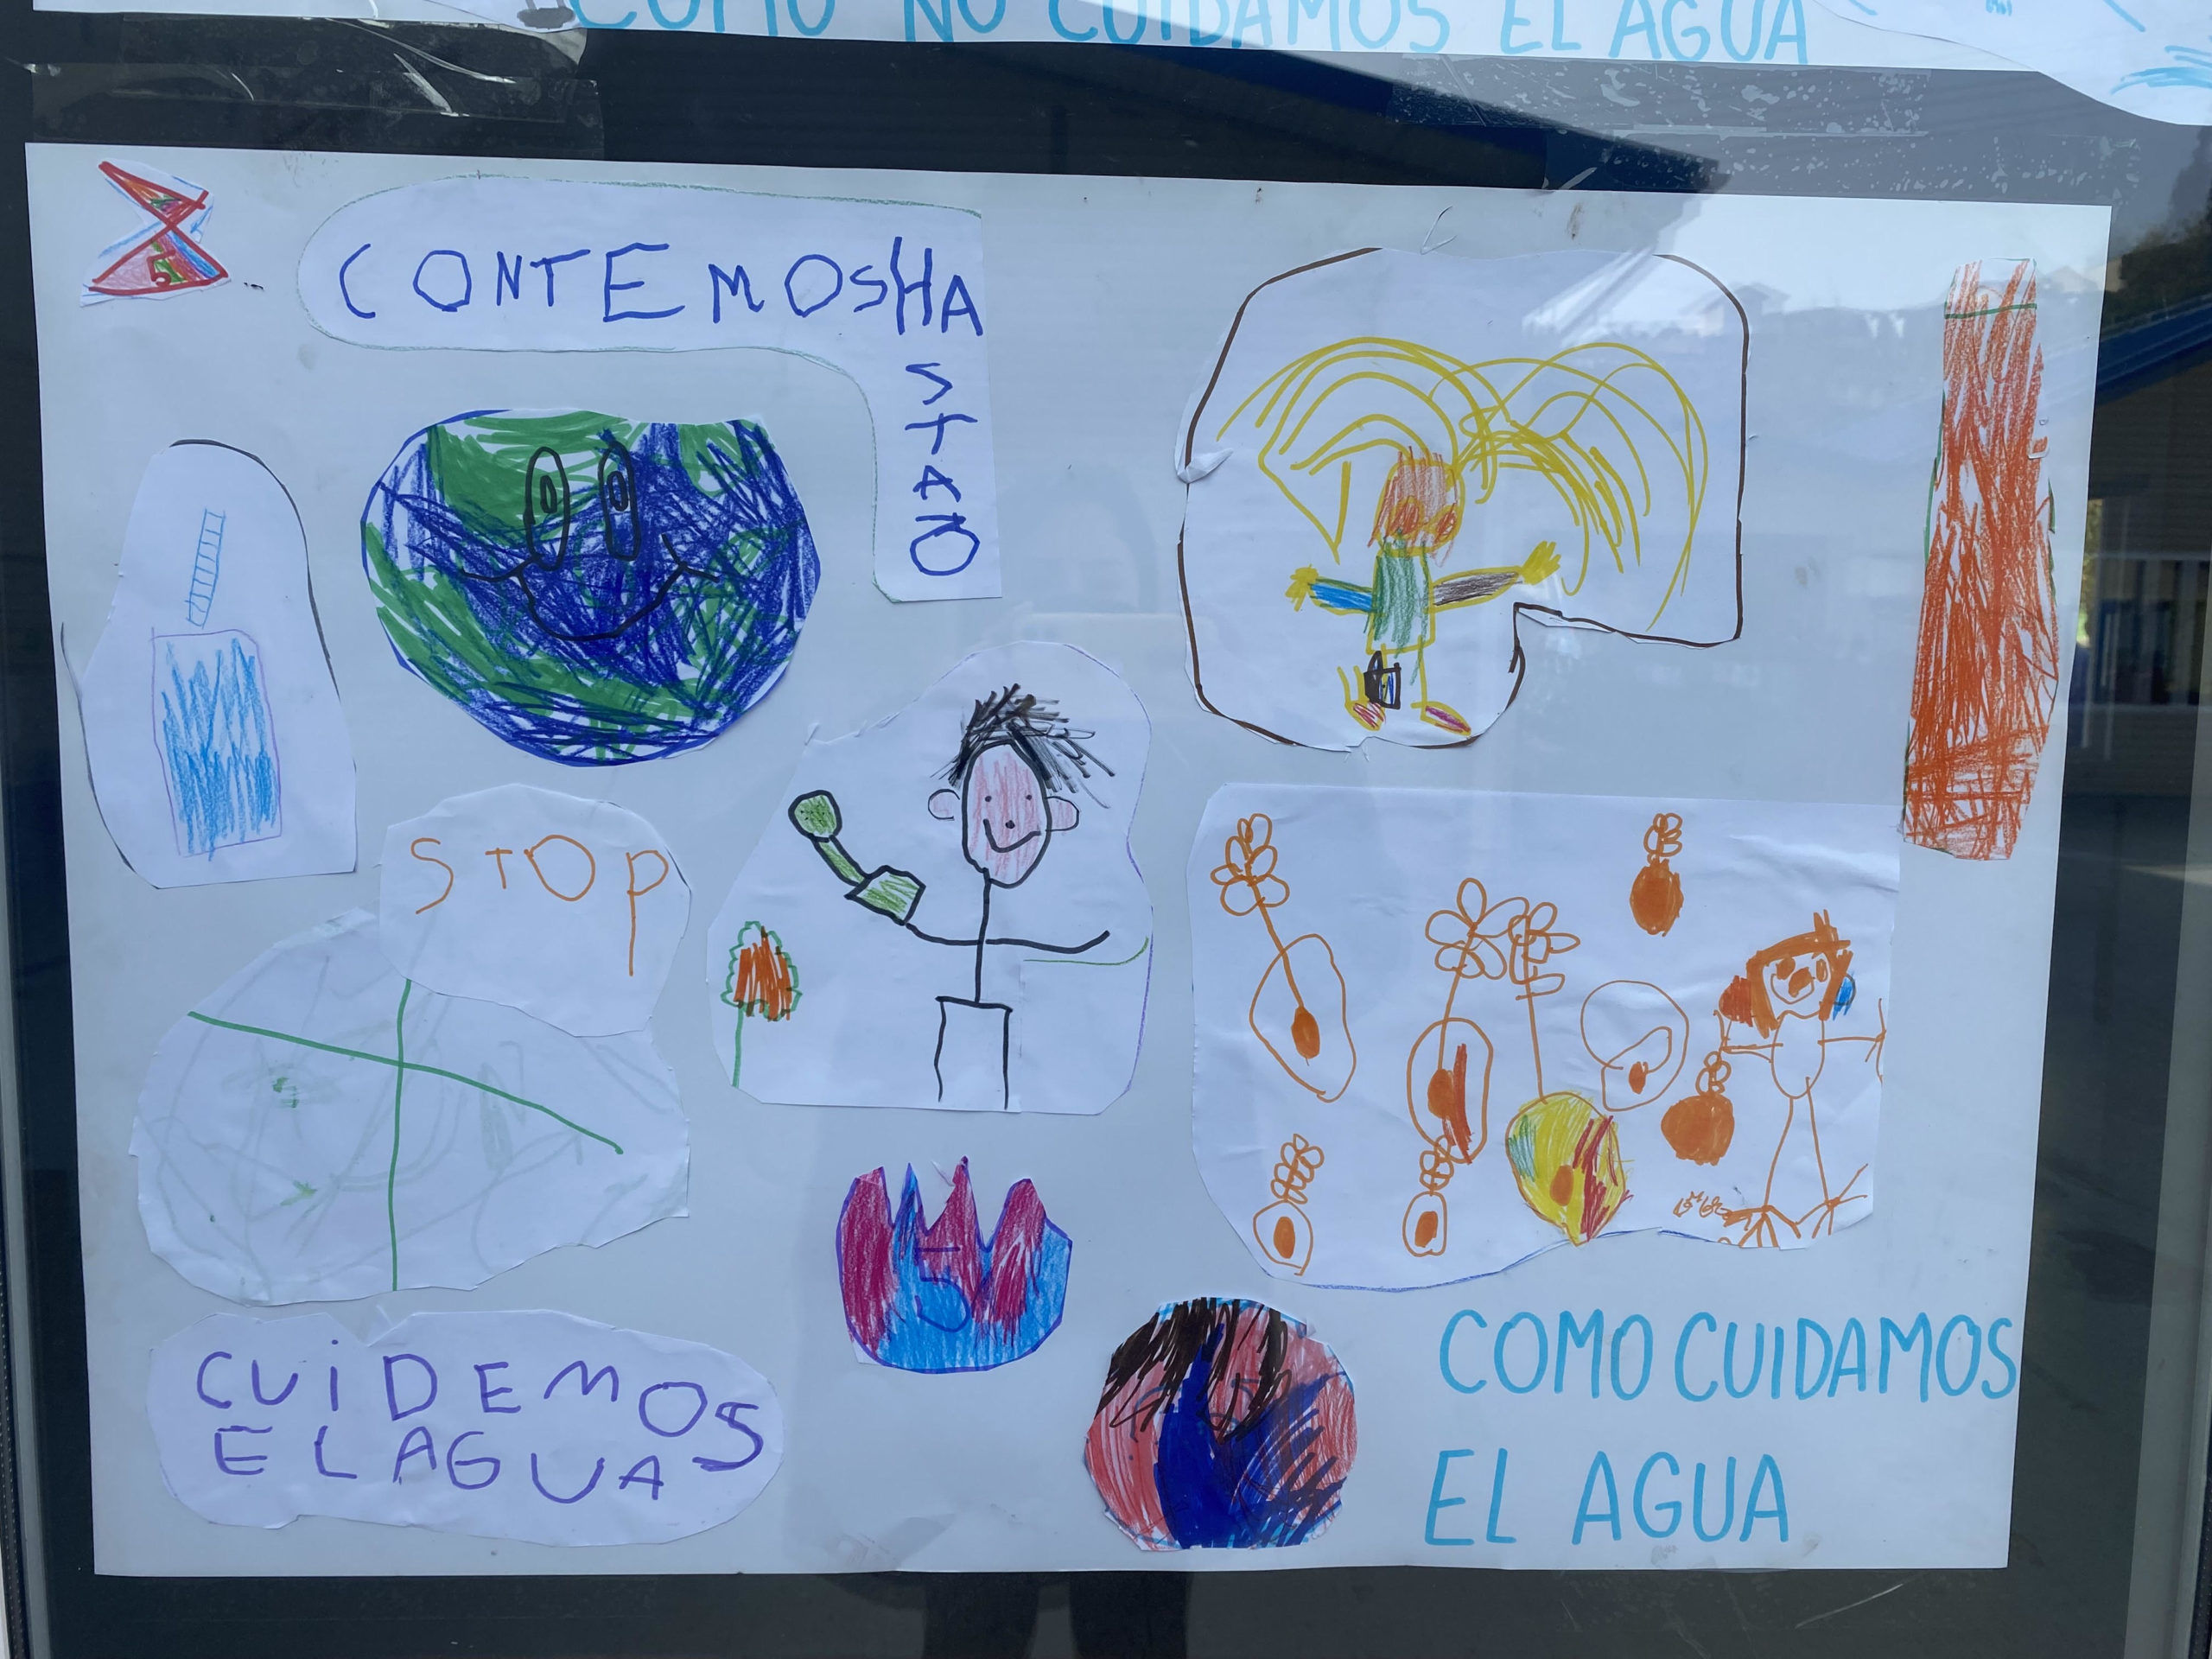 COMO NO CUIDAMOS EL AGUA
5
CONTEMOSHA
STA10
STOP
5
CUiDEMOS
EL AGUA
COMO CUIDAMOS
EL AGUA